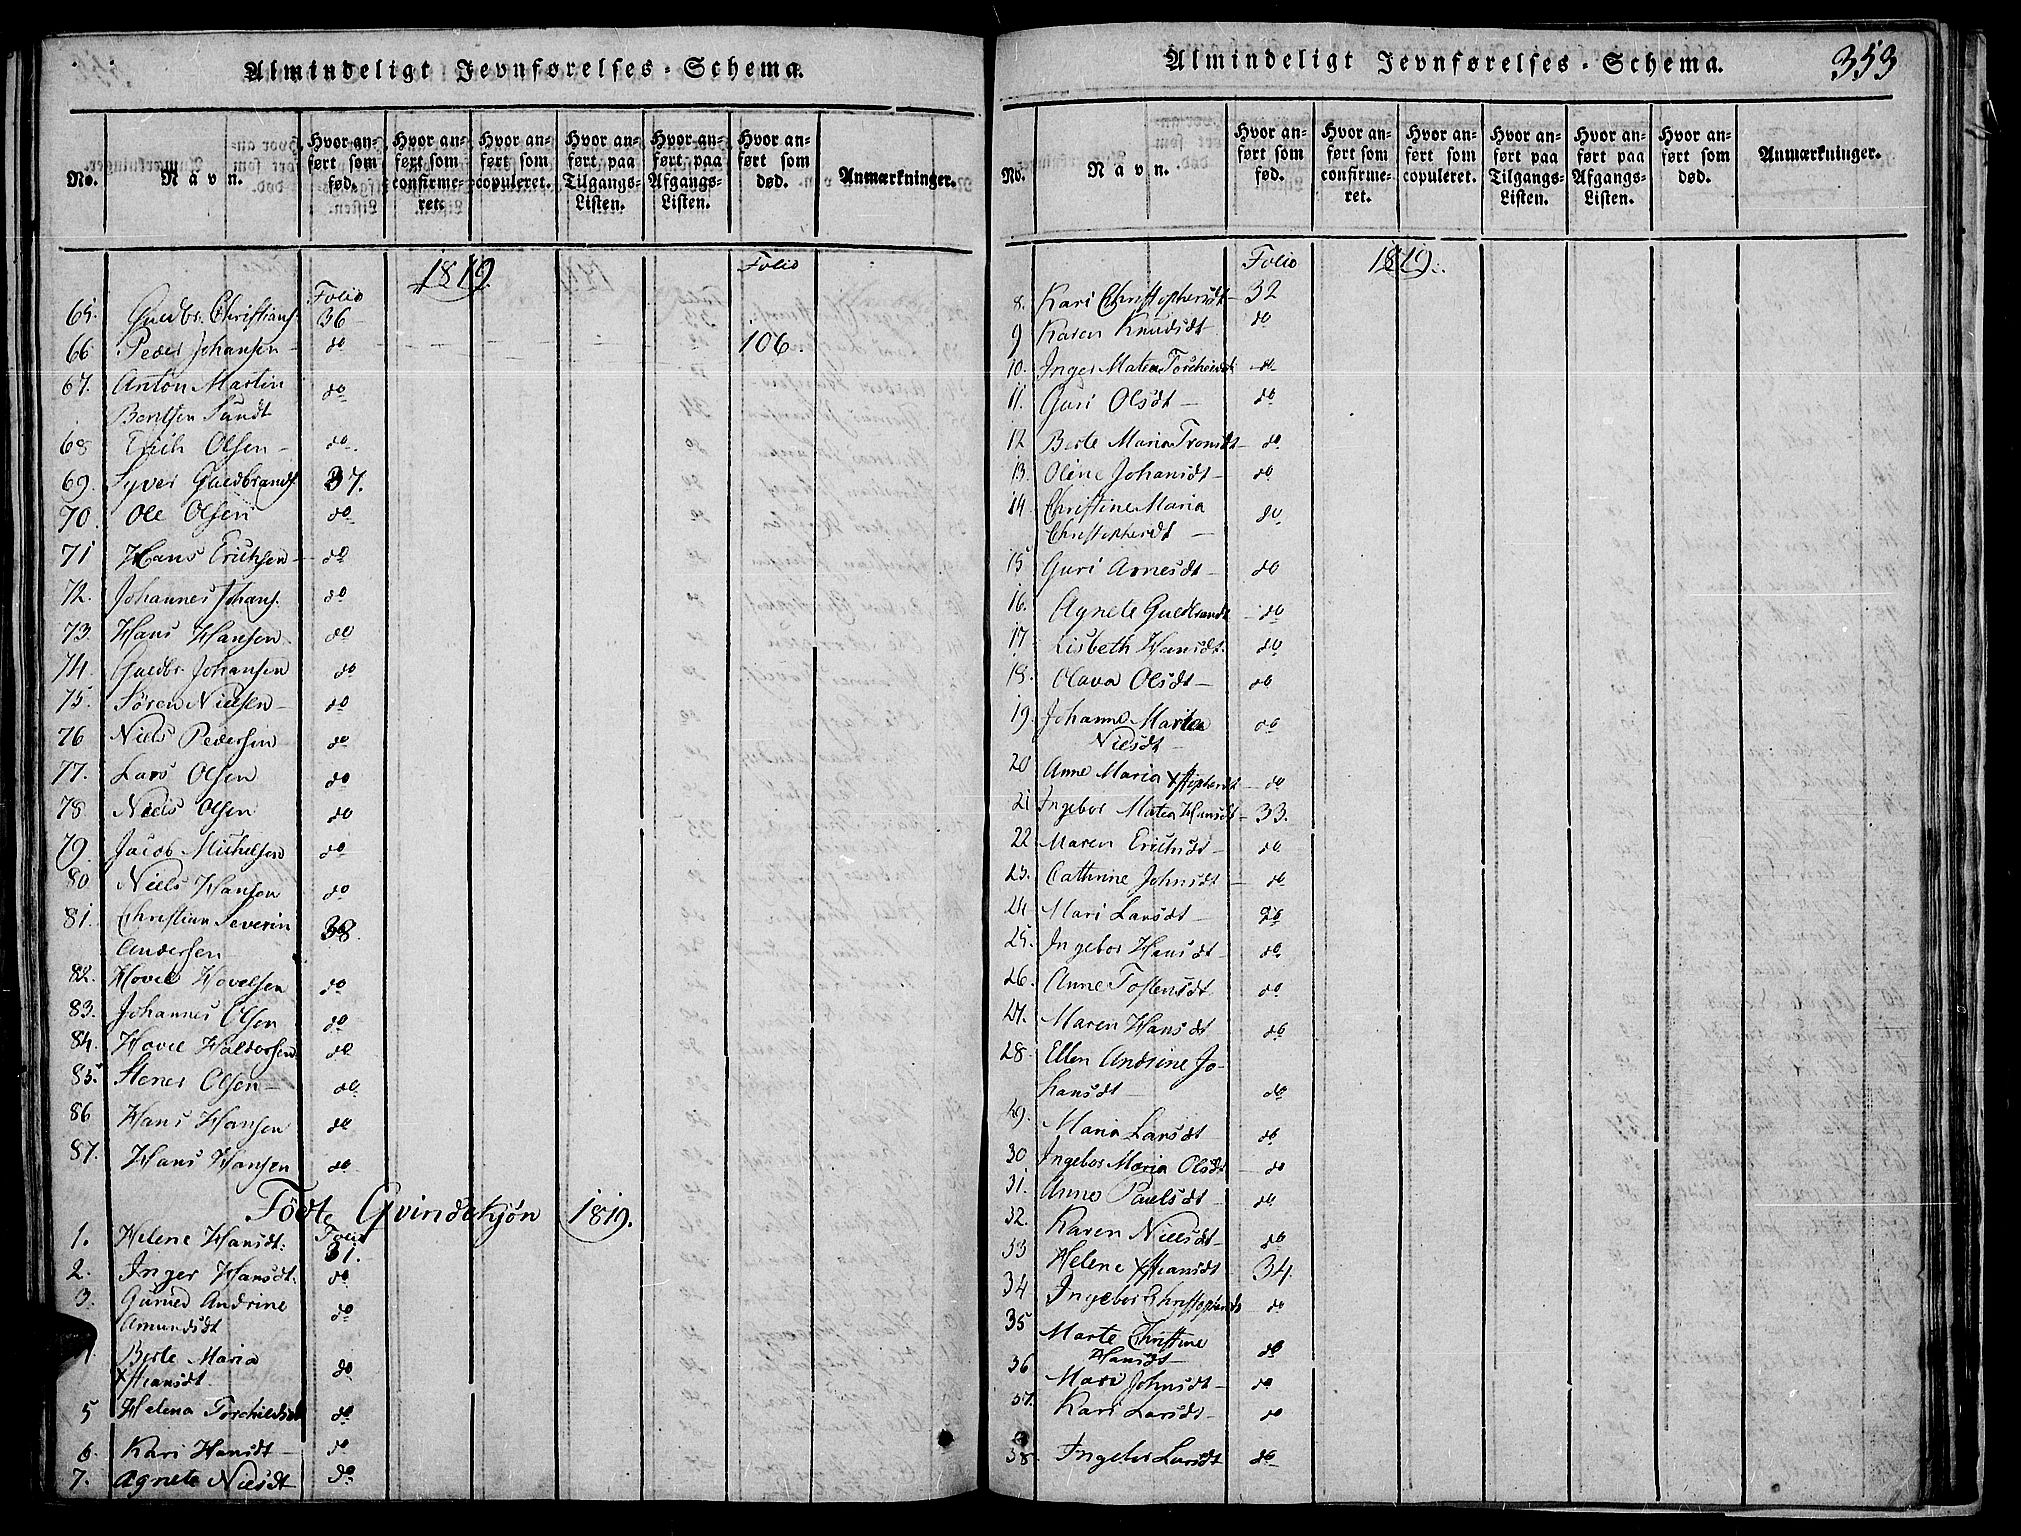 Almindeligt Jevnførelses-Schema.
No. Navn. Hvor anført som fød. Hvor anført som confirmeret. Hvor anført som copuleret. Hvor anført paa Tilgangs-Listen. Hvor anført paa Afgangs-Listen. Hvor anført som død. Anmærkninger.
1819. Folio
Folio
65. Guldbr. Christians. 36
66 Peder Johansen do 106.
67. Anton Martin
Berntsen Sundt do
68 Erich Olsen do
69. Syver Guldbrands. 37.
70. Ole Olsen do
71 Hans Erichsen do
72. Johannes Johans. do
73. Hans Hansen do
74. Guldbr. Johansen do
75. Sören Nielsen do
76 Niels Pedersen do
77. Lars Olsen do
78. Niels Olsen do
79. Jacob Michelsen do
80. Niels Hansen do
81. Christian Severin
Andersen 38.
82. Hovel Hovelsen do
83. Johannes Olsen do
84. Hovel Haldorsen do
85. Stener Olsen do
86 Hans Hansen do
87. Hans Hansen do
Födte Qvindekjøn 1819.
Folio
1. Helene Hansdt: 31.
2. Inger Hansdt. do
3. Gunild Andrine
Amundsdt do
Berte Maria
Xstiansdt do
5 Helena Torchildsdt do
6. Kari Hansdt do
7. Agnete Nielsdt do
Almindeligt Jevnførelses-Schema. 353
No. Navn. Hvor anført som fød. Hvor anført som confirmeret. Hvor anført som copuleret. Hvor anført paa Tilgangs-Listen. Hvor anført paa Afgangs-Listen. Hvor anført som død. Anmærkninger.
Folio 1819.
8. Kari Christophersdt 32
9 Karen Knudsdt do
10. Inger Matea Torchildsdt do
11. Guri Olsdt do
12 Berte Maria Tronsdt do
13. Oline Johansdt do
14. Christine Maria
Christophersdt do
15 Guri Arnesdt do
16. Agnete Guldbrandt do
17 Lisbeth Hansdt. do
18. Olava Olsdt do
19. Johanne Martea
Nielsdt do
20 Anne Maria Xstophersdt do
21 Ingebor Matea Hansdt 33.
22 Maren Erichsdt do
23. Cathrine Johnsdt do
24. Mari Larsdt do
25. Ingebor Hansdt do
26. Anne Tostensdt do
27. Maren Hansdt do
28. Ellen Andrine Jo-
hansdt do
29. Maria Larsdt do
30 Ingebor Maria Olsdt do
31. Anne Paulsdt do
32. Karen Nielsdt do
33 Helene Xstiansdt 34.
34 Ingebor Christophersdt do
35 Marte Christine
Hansdt do
36 Mari Johnsdt do
37. Kari Larsdt do
38. Ingebor Larsdt do